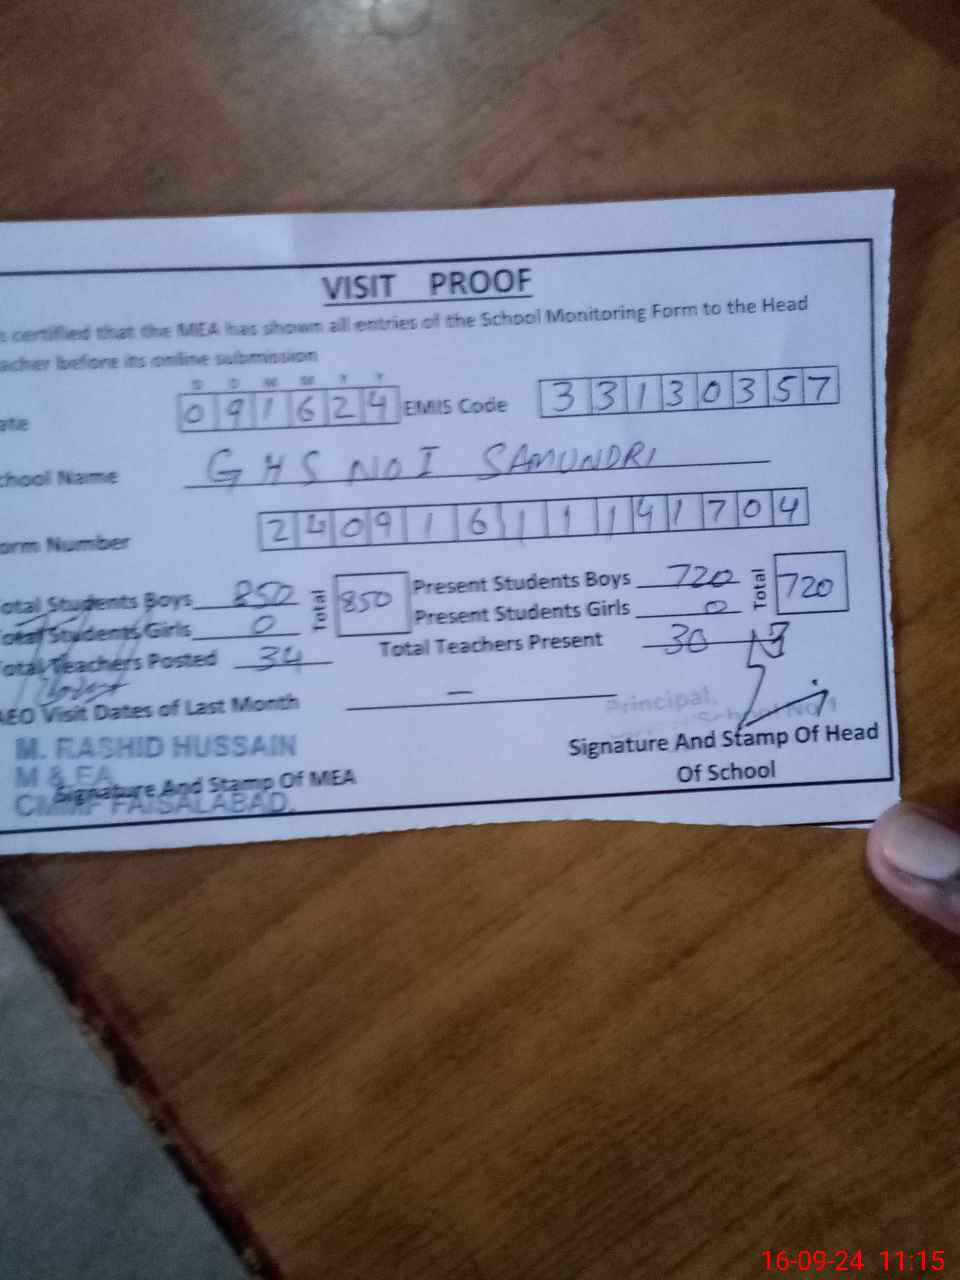 VISIT PROOF
certified that the MEA has shown all entries of the School Monitoring Form to the Head
acher before its online submission
D D M M Y Y
ate 091624 EMIS Code 33130357
chool Name GHS NO I SAMUNDRI
orm Number 240916111141704
otal Students Boys 850 Total 850 Present Students Boys 720 Total 720
otal Students Girls 0 Present Students Girls 0
otal Teachers Posted 34 Total Teachers Present 30
AEO Visit Dates of Last Month —
Principal,
School No 1
M. RASHID HUSSAIN
M & EA
CMMF FAISALABAD.
Signature And Stamp Of MEA
Signature And Stamp Of Head
Of School
16-09-24 11:15